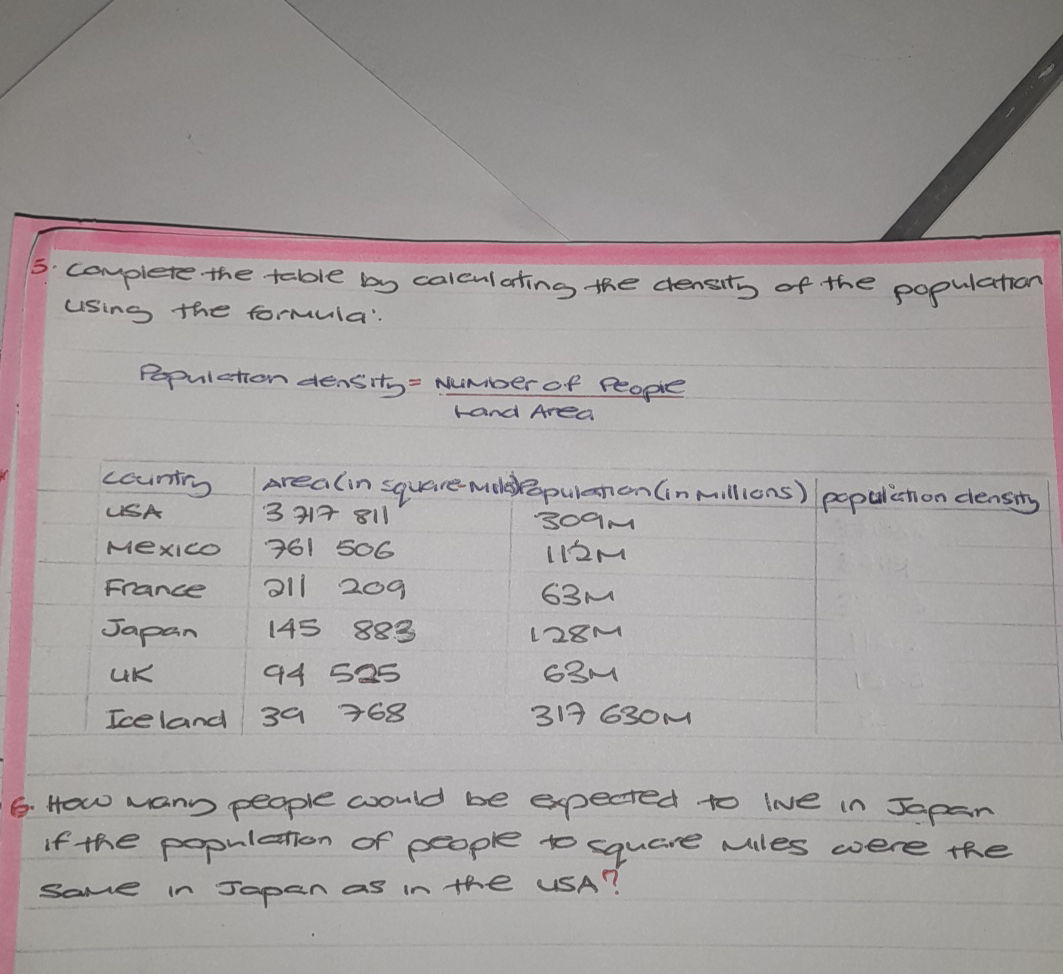 5. Complete the table by calculating the density of the population
using the formula:
Population density = Number of People
Land Area
Country Area (in square-Miles) Population (in Millions) population density
USA 3 717 811 309M
Mexico 761 506 112M
France 211 209 63M
Japan 145 883 128M
UK 94 525 63M
Iceland 39 768 317 630M
6. How many people would be expected to live in Japan
if the population of people to square Miles were the
same in Japan as in the USA?